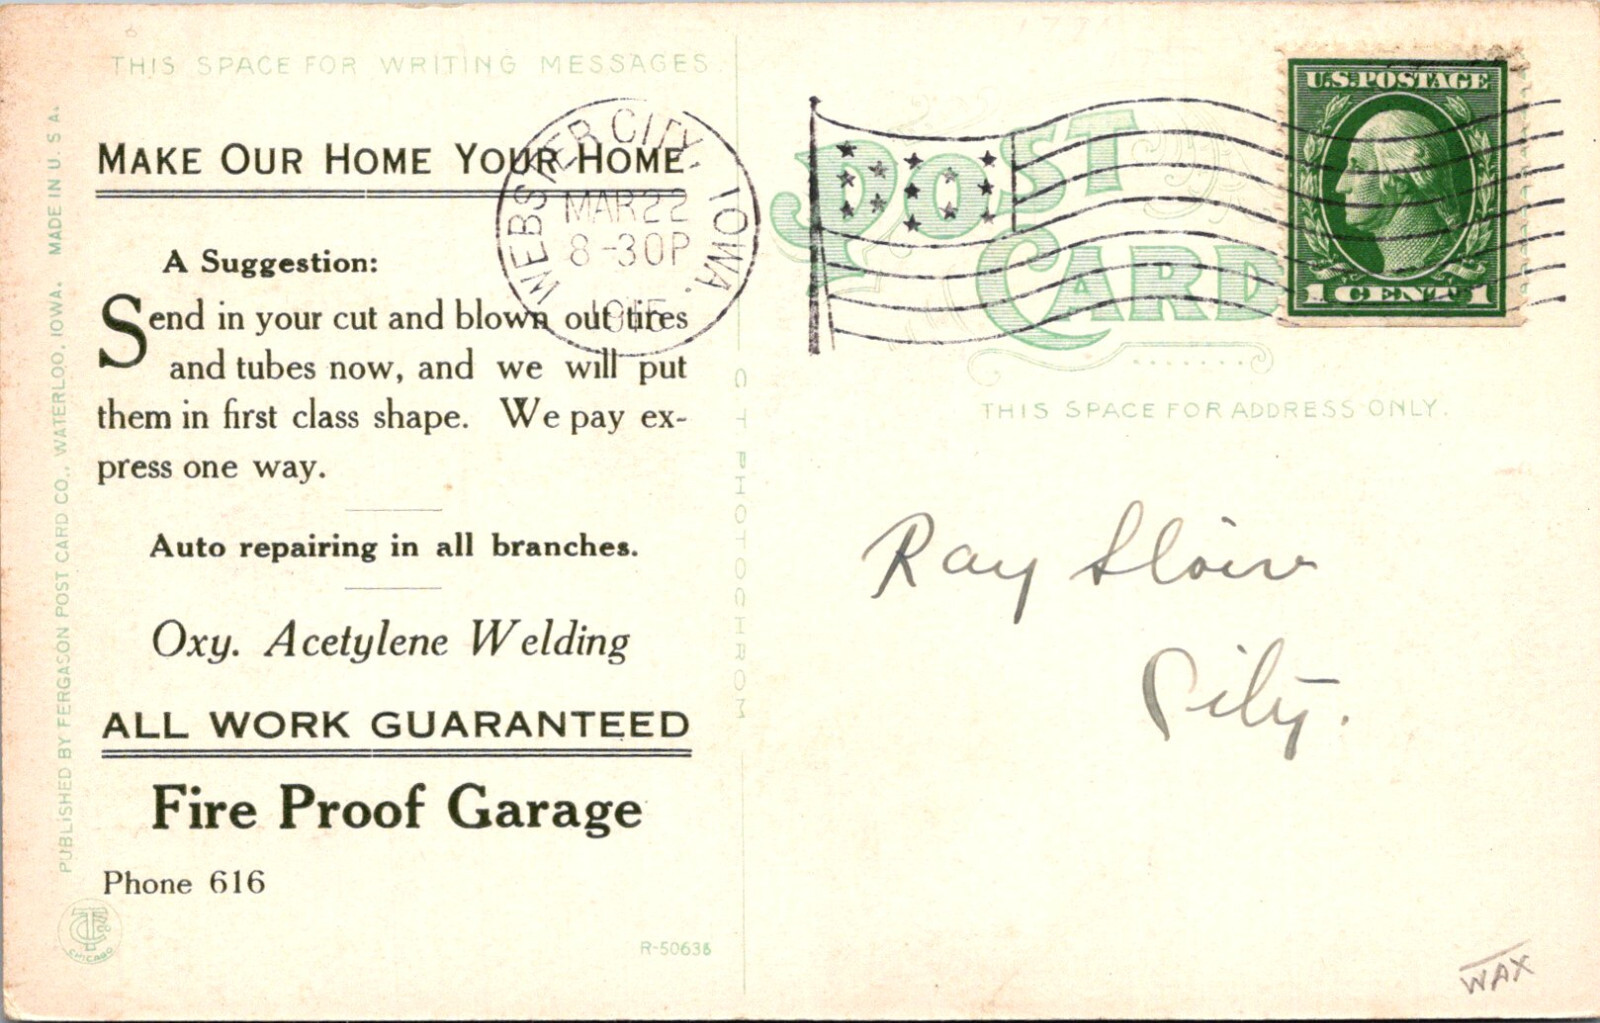 THIS SPACE FOR WRITING MESSAGES
MAKE OUR HOME YOUR HOME
A Suggestion:
Send in your cut and blown out tires
and tubes now, and we will put
them in first class shape. We pay ex-
press one way.
Auto repairing in all branches.
Oxy. Acetylene Welding
ALL WORK GUARANTEED
Fire Proof Garage
Phone 616
CHICAGO
R-50638
PUBLISHED BY FERGASON POST CARD CO., WATERLOO, IOWA. MADE IN U. S A.
C T PHOTOCHROM
WEBSTER CITY, IOWA.
MAR 22
8-30P
POST
CARD
U.S. POSTAGE
1 CENT 1
THIS SPACE FOR ADDRESS ONLY.
Ray
City.
WAX